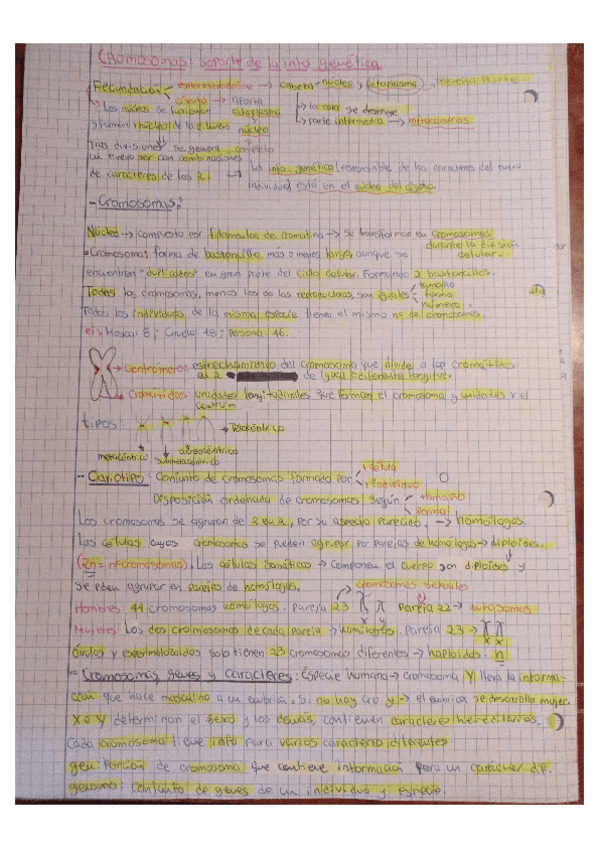 Cromosomas, soporte de la info genética.
Fecundación espermatozoide → cabeza - núcleo, citoplasma
óvulo → aporta
Los núcleos se fusionan citoplasma → la cola se destruye
forman núcleo de la 2 núcleo → parte intermedia → mitocondrias
Tras divisiones se genera completo
un nuevo ser con combinaciones
de caracteres de los 2. → La info. genética (responsable de los caracteres del nuevo
individuo) está en el núcleo del
- Cromosomas:
Núcleo → compuesto por filamentos de cromatina → se transforman en cromosomas
durante la división
celular.
Cromosomas forma de bastoncillo mas o menos largo, aunque se
encuentren "duplicados" en gran parte del ciclo celular. Formando 2 bastoncillos.
Todos los cromosomas, menos los de las reproductoras son iguales tamaño
forma
número.
Todos los individuos de la misma especie tienen el mismo nº de cromosomas.
ej: Mosca: 8; Ciruelo: 48; Persona: 46.
→ Centrómero: estrechamiento del cromosoma que divide a los cromátidas
de igual o diferente longitud.
→ Cromátidas: unidades longitudinales que forman el cromosoma y unidas x el
tipos: → Telocéntrico
metacéntrico submetacéntrico acrocéntrico
- Cariotipo: Conjunto de cromosomas formado por célula
individuo
Disposición ordenada de cromosomas según tamaño
forma
Los cromosomas se agrupan de 2 en 2, por su aspecto parecido. → homólogos.
Las células cuyos cromosomas se pueden agrupar por parejas de homólogos → diploides.
(2n = nº cromosomas). Las células somáticas → componen el cuerpo son diploides y
se pueden agrupar en parejas de homólogos.
cromosomas sexuales
Hombres: 44 cromosomas homólogos. Pareja 23 x y Pareja 22 → autosomas
Mujeres: Los dos cromosomas de cada pareja → homólogos. Pareja 23 → x x
óvulos y espermatozoides solo tienen 23 cromosomas diferentes → haploides. n
- Cromosomas, genes y caracteres: Especie humana → cromosoma Y lleva la informa-
ción que hace masculino a un embrión. Si no hay cro y → el embrión se desarrolla mujer
X e Y determinan el sexo y los demás, contienen caracteres hereditarios.
Cada cromosoma tiene info para varios caracteres diferentes
gen Porción de cromosoma que contiene información para un carácter dif.
genoma: Conjunto de genes de un individuo y especie.